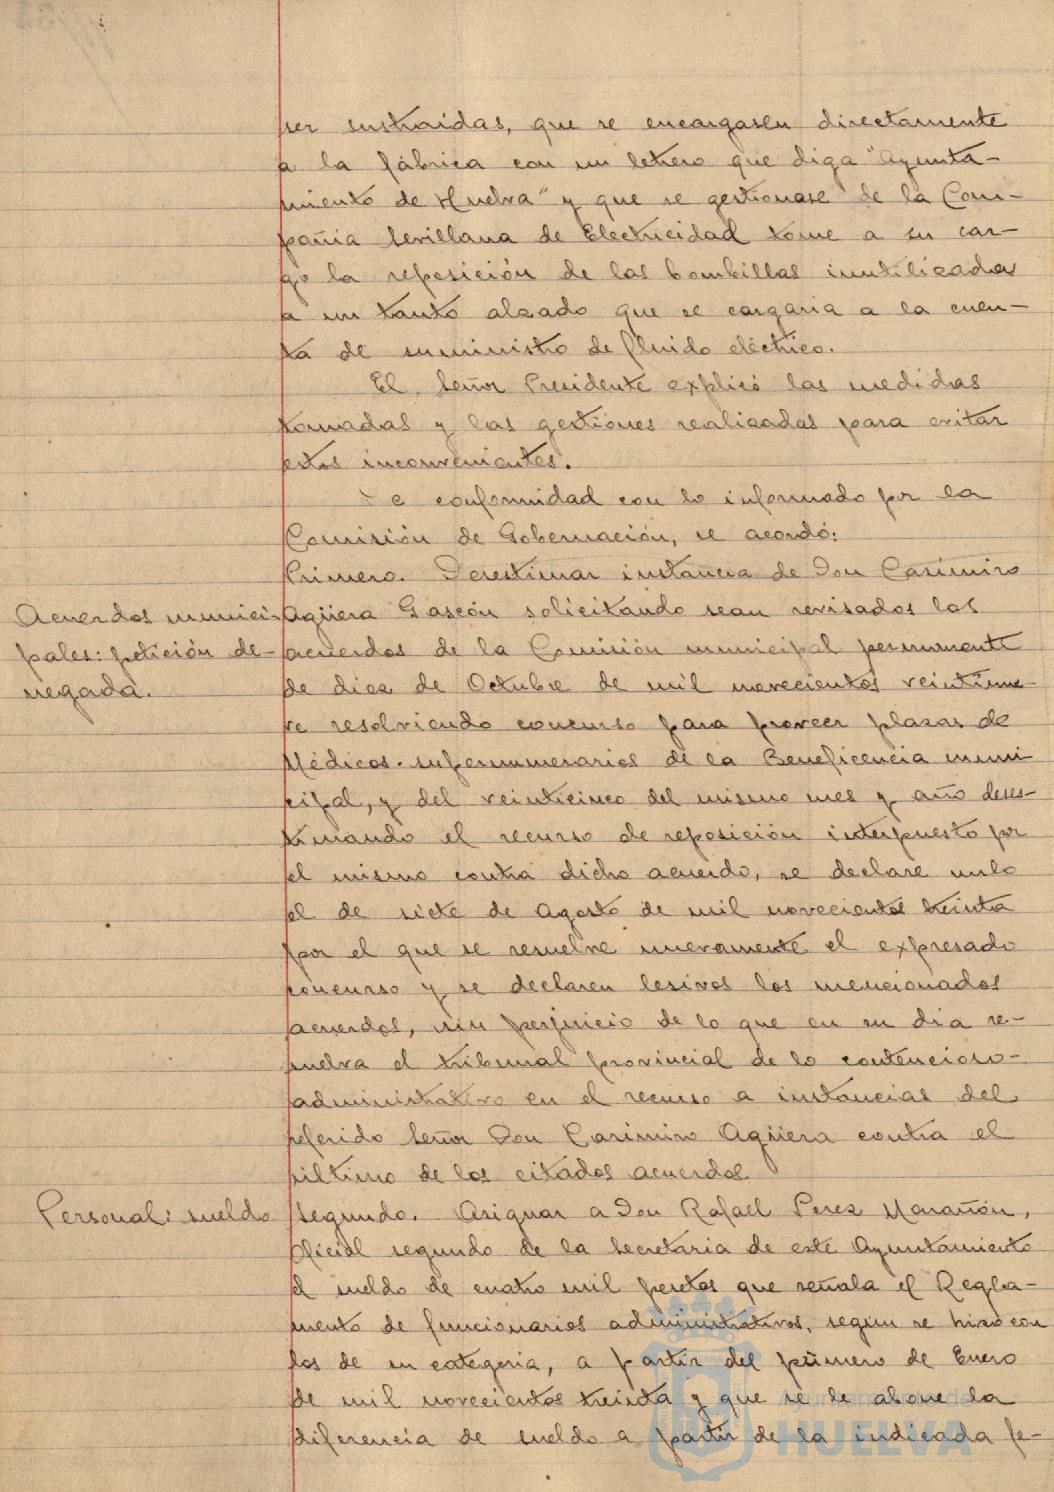 ser sustraidas, que se encargasen directamente
a la fábrica con un letrero que diga "Ayunta-
miento de Huelva" y que se gestionase de la Com-
pañia Sevillana de Electricidad tome a su car-
go la reposición de las bombillas inutilizadas
a un tanto alzado que se cargaria a la cuen-
ta de suministro de fluido eléctrico.
El Señor Presidente explicó las medidas
tomadas y las gestiones realizadas para evitar
estos inconvenientes.
De conformidad con lo informado por la
Comisión de Gobernación, se acordó:
Primero. Desestimar instancia de Don Casimiro
Acuerdos munici-
pales: petición de-
negada.
Agüera Gascón solicitando sean revisados los
acuerdos de la Comisión municipal permanente
de diez de Octubre de mil novecientos veintinue-
ve resolviendo concurso para proveer plazas de
Médicos supernumerarios de la Beneficencia muni
cipal, y del veinticinco del mismo mes y año deses-
timando el recurso de reposición interpuesto por
el mismo contra dicho acuerdo, se declare nulo
el de siete de Agosto de mil novecientos treinta
por el que se resuelve nuevamente el expresado
concurso y se declaren lesivos los mencionados
acuerdos, sin perjuicio de lo que en su dia re-
suelva el tribunal provincial de lo contencioso-
administrativo en el recurso a instancias del
referido Señor Don Casimiro Agüera contra el
último de los citados acuerdos
Personal: sueldo
Segundo. Asignar a Don Rafael Perez Marañón,
Oficial segundo de la Secretaria de este Ayuntamiento
el sueldo de cuatro mil pesetas que señala el Regla-
mento de funcionarios administrativos, segun se hizo con
los de su categoria, a partir del primero de Enero
de mil novecientos treinta y que se le abone la
diferencia de sueldo a partir de la indicada fe-
Ayuntamiento de
HUELVA